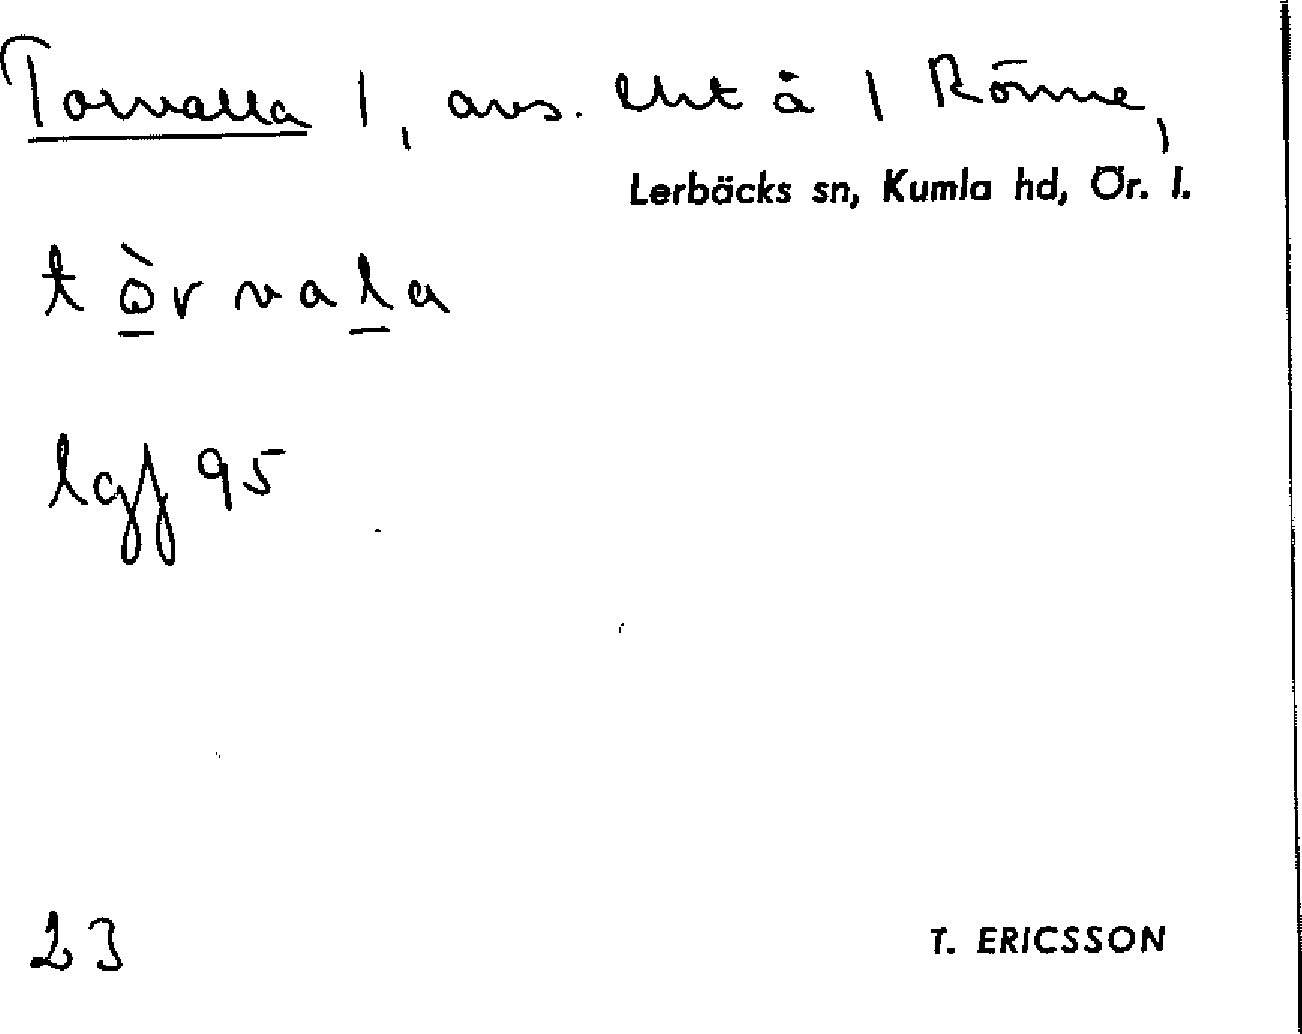 Torvalla 1, avs. lht å 1 Rönne,
Lerbäcks sn, Kumla hd, Ör. l.
tòrvala
lgf 95
23
T. ERICSSON